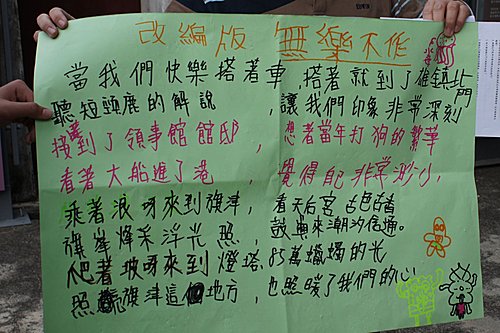 改編版 無樂不作
當我們快樂搭著車,搭著就到了雄鎮北門
聽短頸鹿的解說,讓我們印象非常深刻
接著到了領事館館邸,想著當年打狗的繁華
看著大船進了港,覺得自己非常渺小,
乘著浪呀來到旗津,看天后宮古色古香
旗峯烽采浮光照,鼓崙來潮汐信通。
爬著坡呀來到燈塔,85萬蠟燭的光
照亮旗津這個地方,也照暖了我們的心